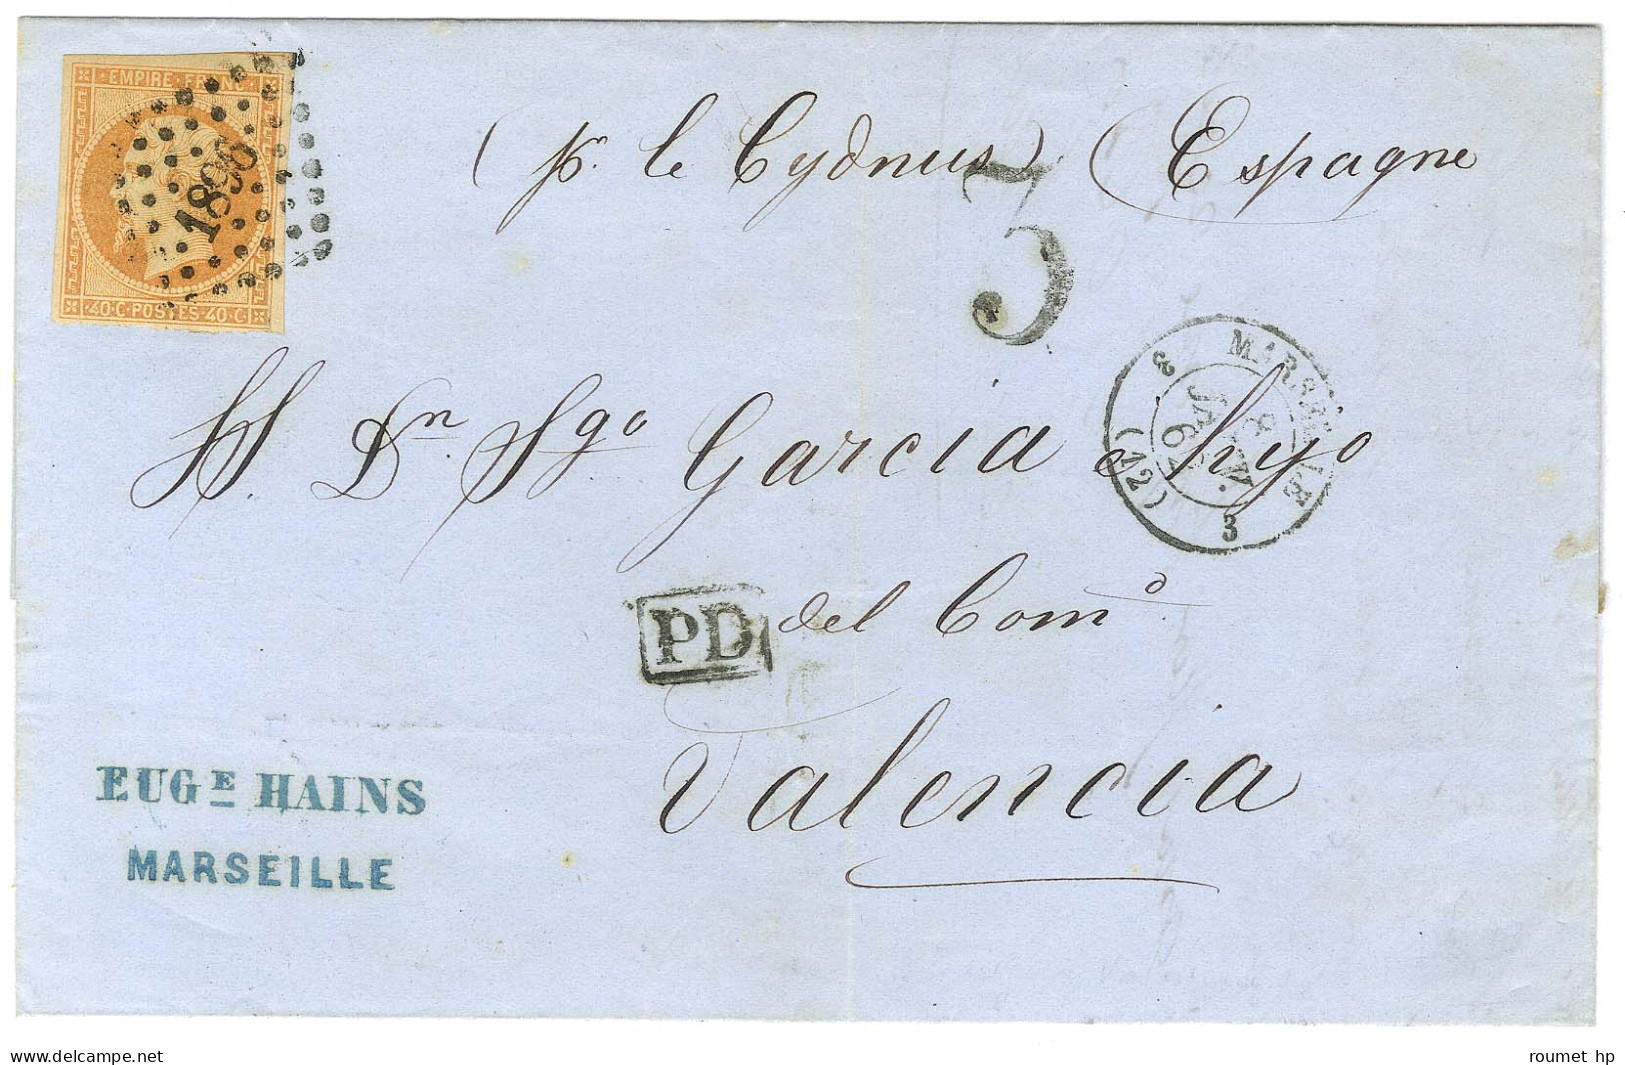 EMPIRE · FRANC ·
1896
· 40 · C · POSTES · 40 · C ·
( pr. le Cydnus ) ( Espagne
3
MARSEILLE
8
JANV.
62
3 (12) 3
Dn Sgo Garcia é hijo
PD
del Como
Valencia
EUGE HAINS
MARSEILLE
www.delcampe.net
roumet hp